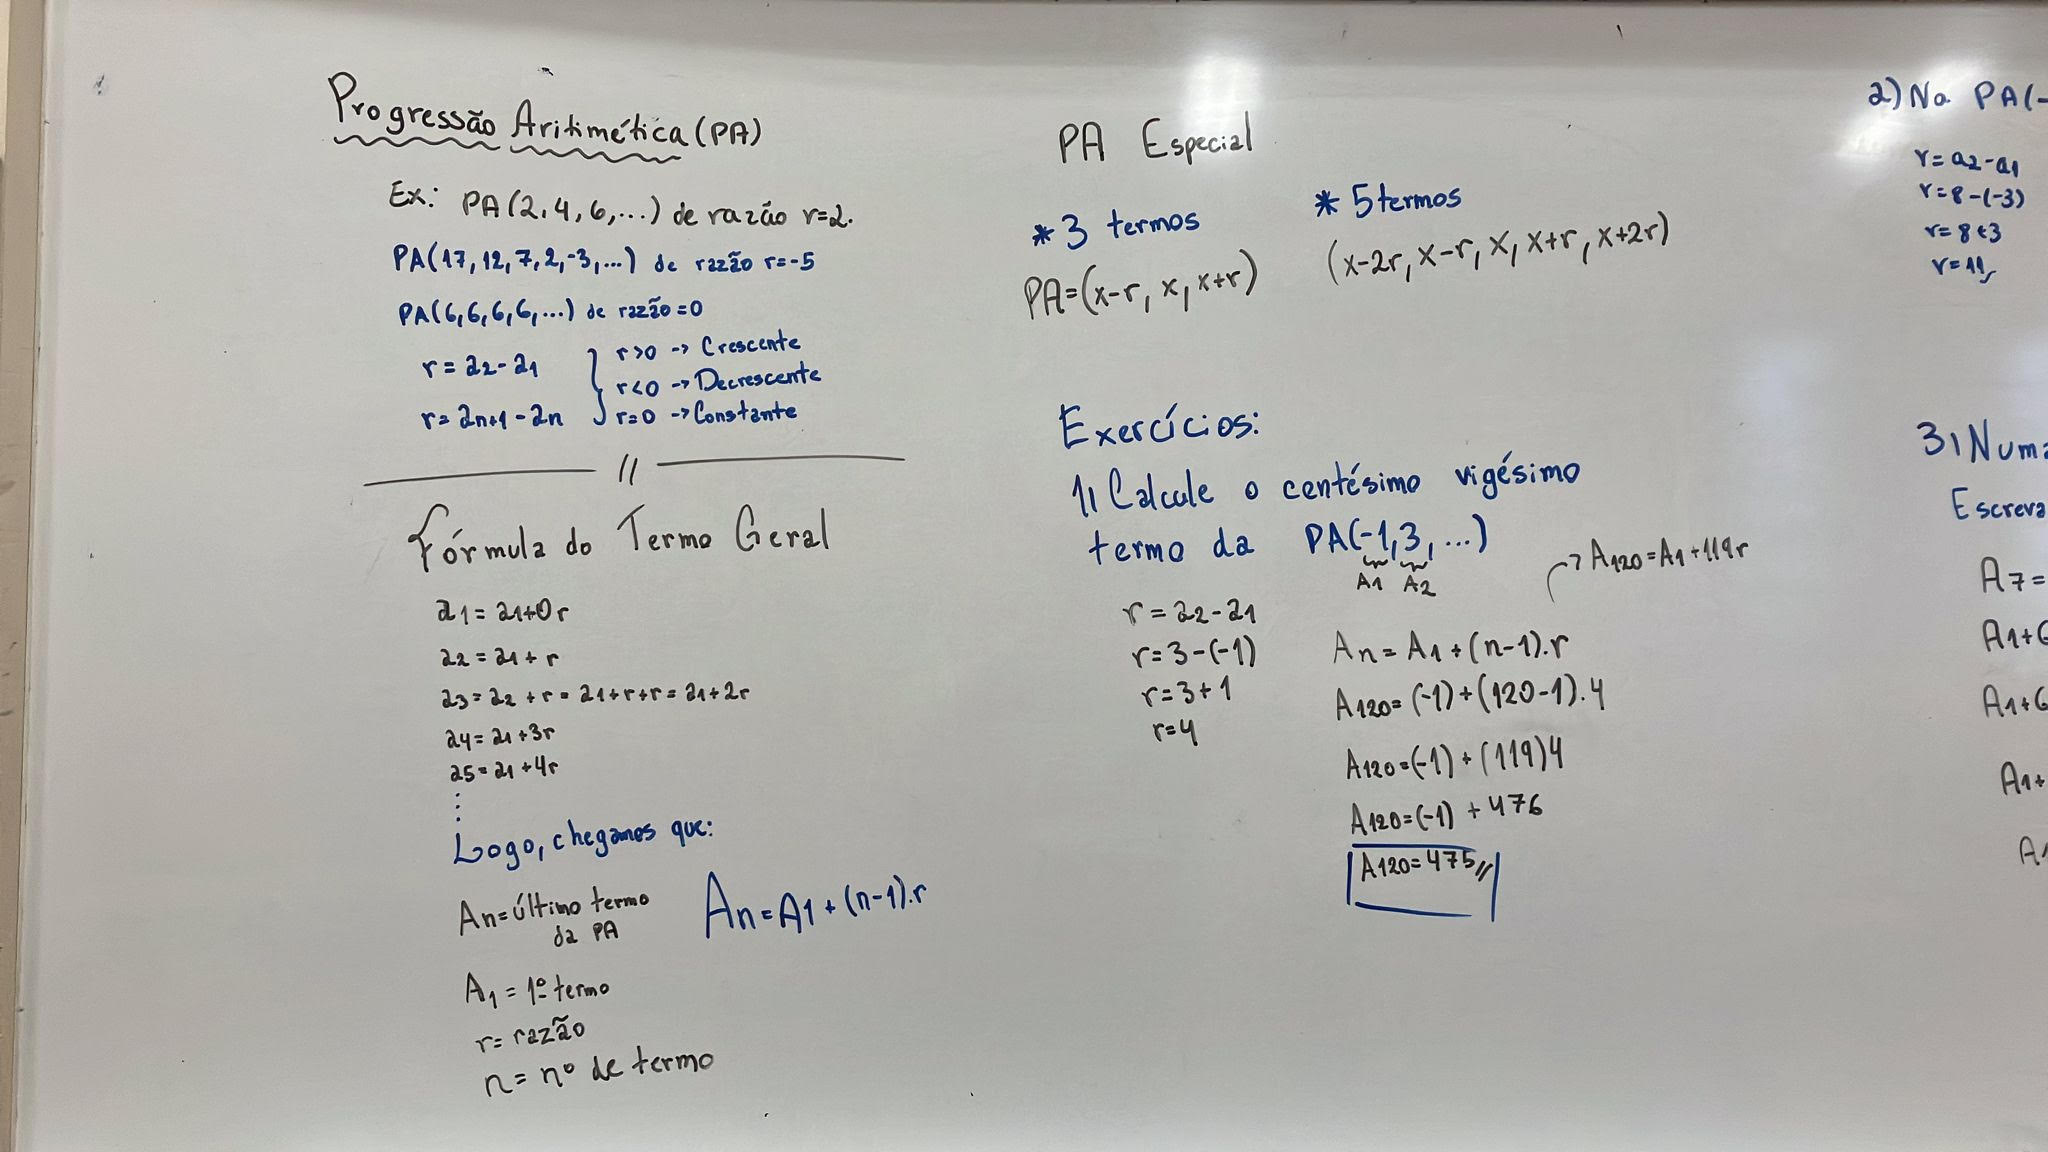 Progressão Aritimética (PA)
Ex: PA(2,4,6,...) de razão r=2.
PA(17,12,7,2,-3,...) de razão r=-5
PA(6,6,6,6,...) de razão=0
r=a2-a1
r=an+1-an
r>0 -> Crescente
r<0 -> Decrescente
r=0 -> Constante
//
Fórmula do Termo Geral
a1=a1+0r
a2=a1+r
a3=a2+r=a1+r+r=a1+2r
a4=a1+3r
a5=a1+4r
⋮
Logo, chegamos que:
An=último termo
da PA
An=A1+(n-1).r
A1=1º termo
r=razão
n=nº de termo
PA Especial
*3 termos
PA=(x-r, x, x+r)
*5 termos
(x-2r, x-r, x, x+r, x+2r)
Exercícios:
1) Calcule o centésimo vigésimo
termo da PA(-1,3,...)
A1 A2
r=a2-a1
r=3-(-1)
r=3+1
r=4
A120=A1+119r
An=A1+(n-1).r
A120=(-1)+(120-1).4
A120=(-1)+(119)4
A120=(-1)+476
A120=475//
2) Na PA(-
r=a2-a1
r=8-(-3)
r=8+3
r=11
3) Numa
Escreva
A7=
A1+6
A1+6
A1+
A1